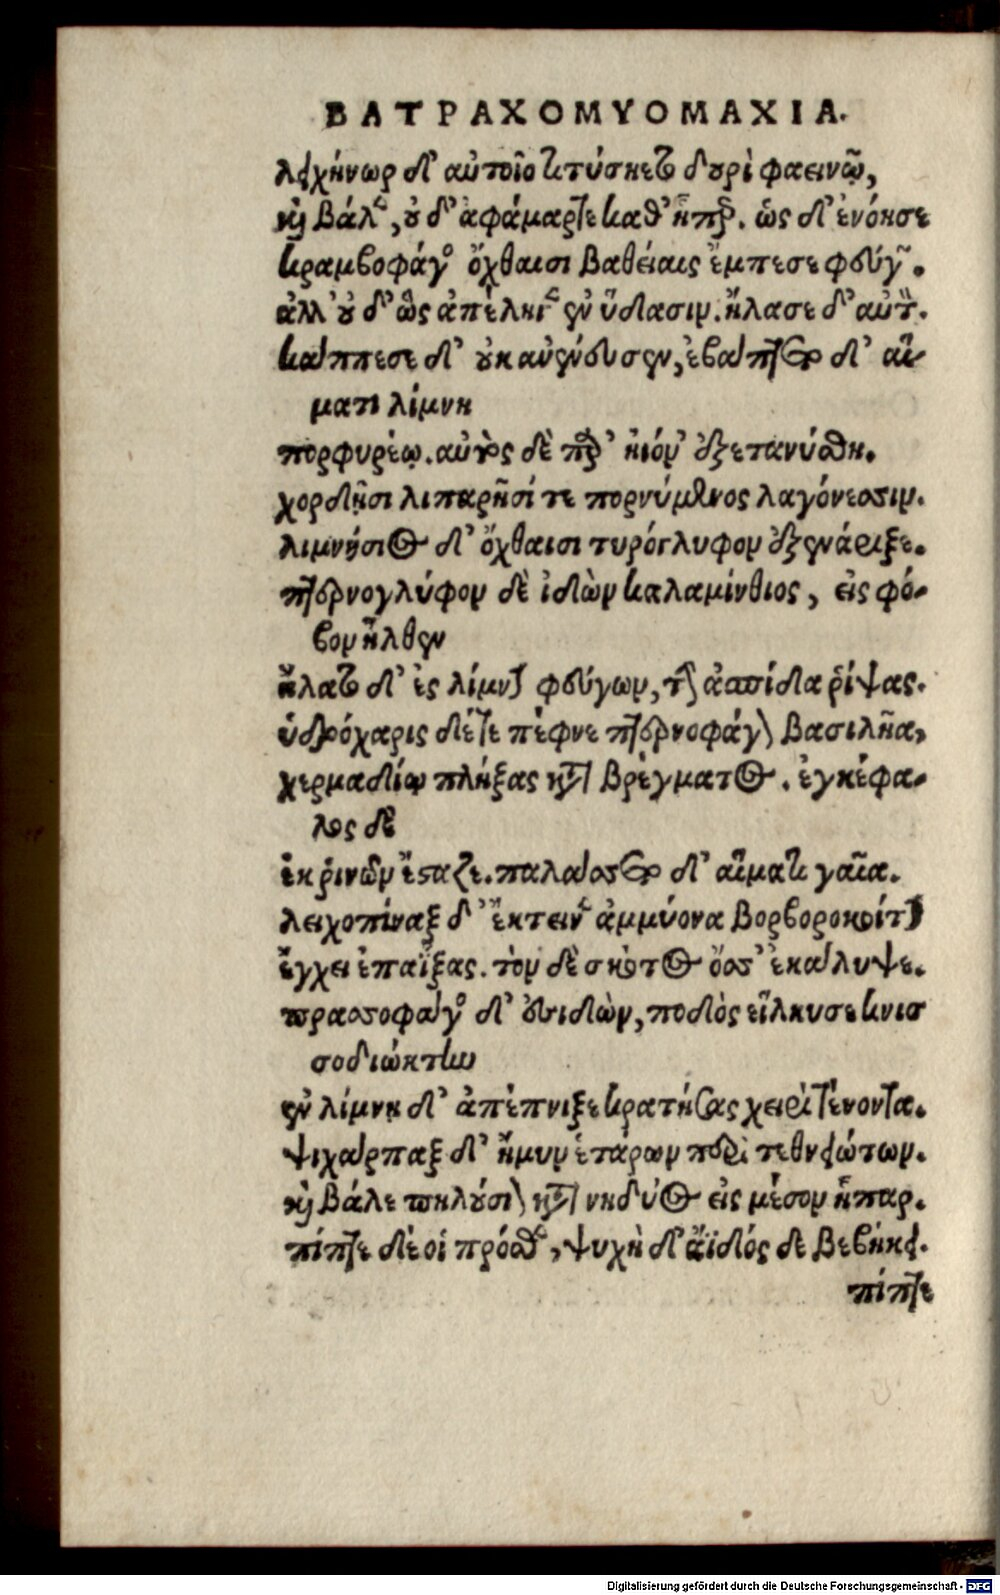 ΒΑΤΡΑΧΟΜΥΟΜΑΧΙΑ.
λειχήνωρ δ' αὐτοῖο τιτύσκετο δουρὶ φαεινῷ,
καὶ βάλεν, οὐδ' ἀφάμαρτε καθ' ἧπαρ. ὡς δ' ἐνόησε
κραμβοφάγος ὄχθαισι βαθείαις ἔμπεσε φεύγων.
ἀλλ' οὐδ' ὣς ἀπέληγεν ἐν ὕδασιν. ἤλασε δ' αὐτόν.
κάππεσε δ' οὐκ ἀνένευσεν, ἐβάπτετο δ' αἵ-
ματι λίμνη
πορφυρέῳ. αὐτὸς δὲ παρ' ἠιόν' ἐξετανύσθη.
χορδῇσι λιπαρῇσί τε πορνύμενος λαγόνεσσιν.
λιμνήσιος δ' ὄχθαισι τυρόγλυφον ἐξενάριξε.
πτερνογλύφον δὲ ἰδὼν καλαμίνθιος, εἰς φό-
βον ἦλθεν
ἥλατο δ' ἐς λίμνην φεύγων, τὴν ἀσπίδα ῥίψας.
ὑδρόχαρις δέ τε πέφνε πτερνοφάγαν βασιλῆα,
χερμαδίῳ πλήξας κατὰ βρέγματος. ἐγκέφα-
λος δὲ
ἐκ ῥινῶν ἔσταζε. παλάσσετο δ' αἵματι γαῖα.
λειχοπίναξ δ' ἔκτεινεν ἀμμύονα βορβοροκοίτην
ἔγχει ἐπαΐξας. τὸν δὲ σκότος ὄσσ' ἐκάλυψε.
πρασσοφάγος δ' ἐσιδὼν, ποδὸς εἵλκυσε κνισ
σοδιώκτην
ἐν λίμνῃ δ' ἀπέπνιξε κρατήσας χειρὶ τένοντα.
ψιχάρπαξ δ' ἤμυν' ἑτάρων περὶ τεθνειώτων.
καὶ βάλε πηλούσιον κατὰ νηδύος εἰς μέσον ἧπαρ.
πίπτε δέ οἱ πρόσθεν, ψυχὴ δ' ἄϊδός δε βεβήκει.
πίπτε
Digitalisierung gefördert durch die Deutsche Forschungsgemeinschaft - DFG